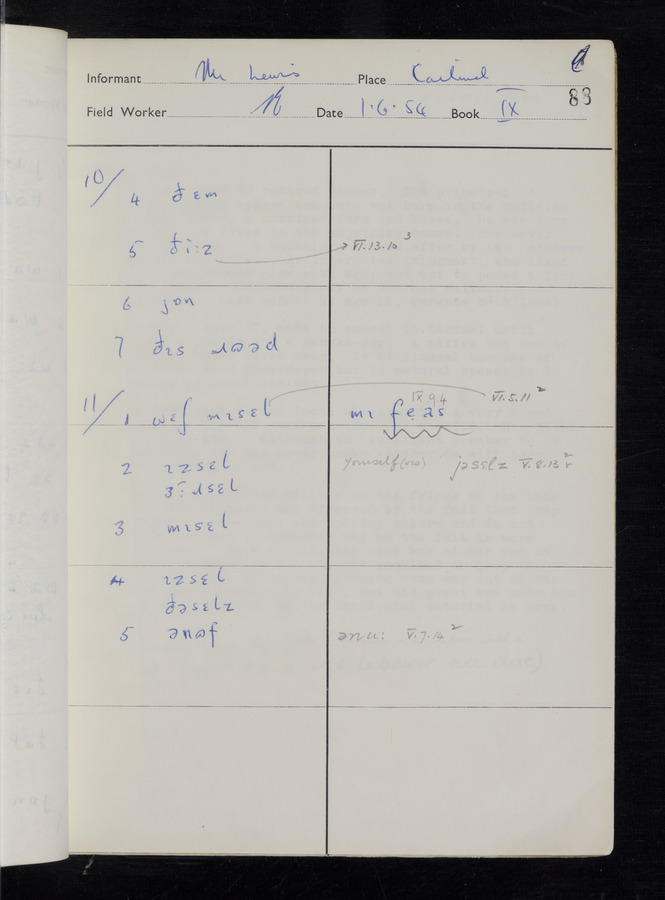 Informant Mr Lewis Place Cartmel
Field Worker Date 1·6·54 Book IX 83
10/ 4 ðɛm
5 ði:z → VI.13.10 3
6 jon
7 ðɪs
11/ 1 mɪsɛl mɪ IX 9.4 VI.5.11 2
2 ɪzsɛl yourself(ves) jəsɛlz V.8.13 2
ɜ:ɹsɛl
3 mɪsɛl
4 ɪzsɛl
ðəsɛlz
5 ənɒf ənu: V.7.14 2